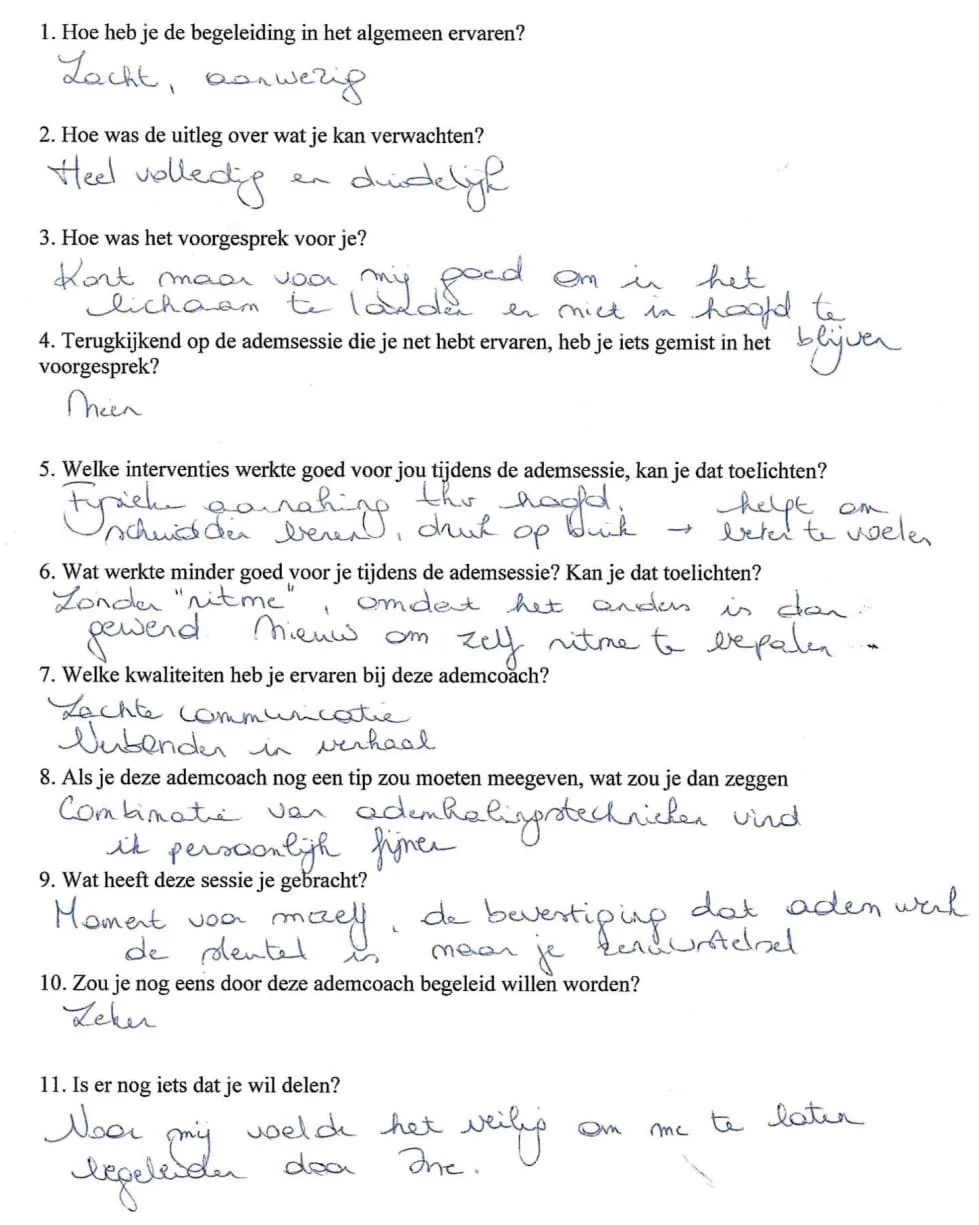 1. Hoe heb je de begeleiding in het algemeen ervaren?
Zacht, aanwezig
2. Hoe was de uitleg over wat je kan verwachten?
Heel volledig en duidelijk
3. Hoe was het voorgesprek voor je?
Kort maar voor mij goed om in het
lichaam te landen en niet in hoofd te
blijven
4. Terugkijkend op de ademsessie die je net hebt ervaren, heb je iets gemist in het
voorgesprek?
Neen
5. Welke interventies werkte goed voor jou tijdens de ademsessie, kan je dat toelichten?
Fysieke aanraking thv hoofd, helpt om
schudden benen, druk op buik → beter te voelen
6. Wat werkte minder goed voor je tijdens de ademsessie? Kan je dat toelichten?
Zonder "ritme", omdat het anders is dan
gewend Nieuw om zelf ritme te bepalen
7. Welke kwaliteiten heb je ervaren bij deze ademcoach?
Zachte communicatie
Verbinden in verhaal
8. Als je deze ademcoach nog een tip zou moeten meegeven, wat zou je dan zeggen
Combinatie van ademhalingstechnieken vind
ik persoonlijk fijner
9. Wat heeft deze sessie je gebracht?
Moment voor mezelf, de bevestiging dat ademwerk
de sleutel is naar je zenuwstelsel
10. Zou je nog eens door deze ademcoach begeleid willen worden?
Zeker
11. Is er nog iets dat je wil delen?
Voor mij voelde het veilig om me te laten
begeleiden door